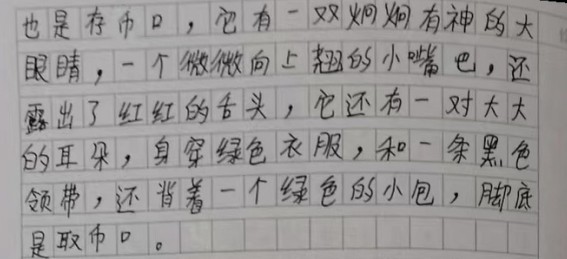 也是存币口，它有一双炯炯有神的大
眼睛，一个微微向上翘的小嘴巴，还
露出了红红的舌头，它还有一对大大
的耳朵，身穿绿色衣服，和一条黑色
领带，还背着一个绿色的小包，脚底
是取币口。